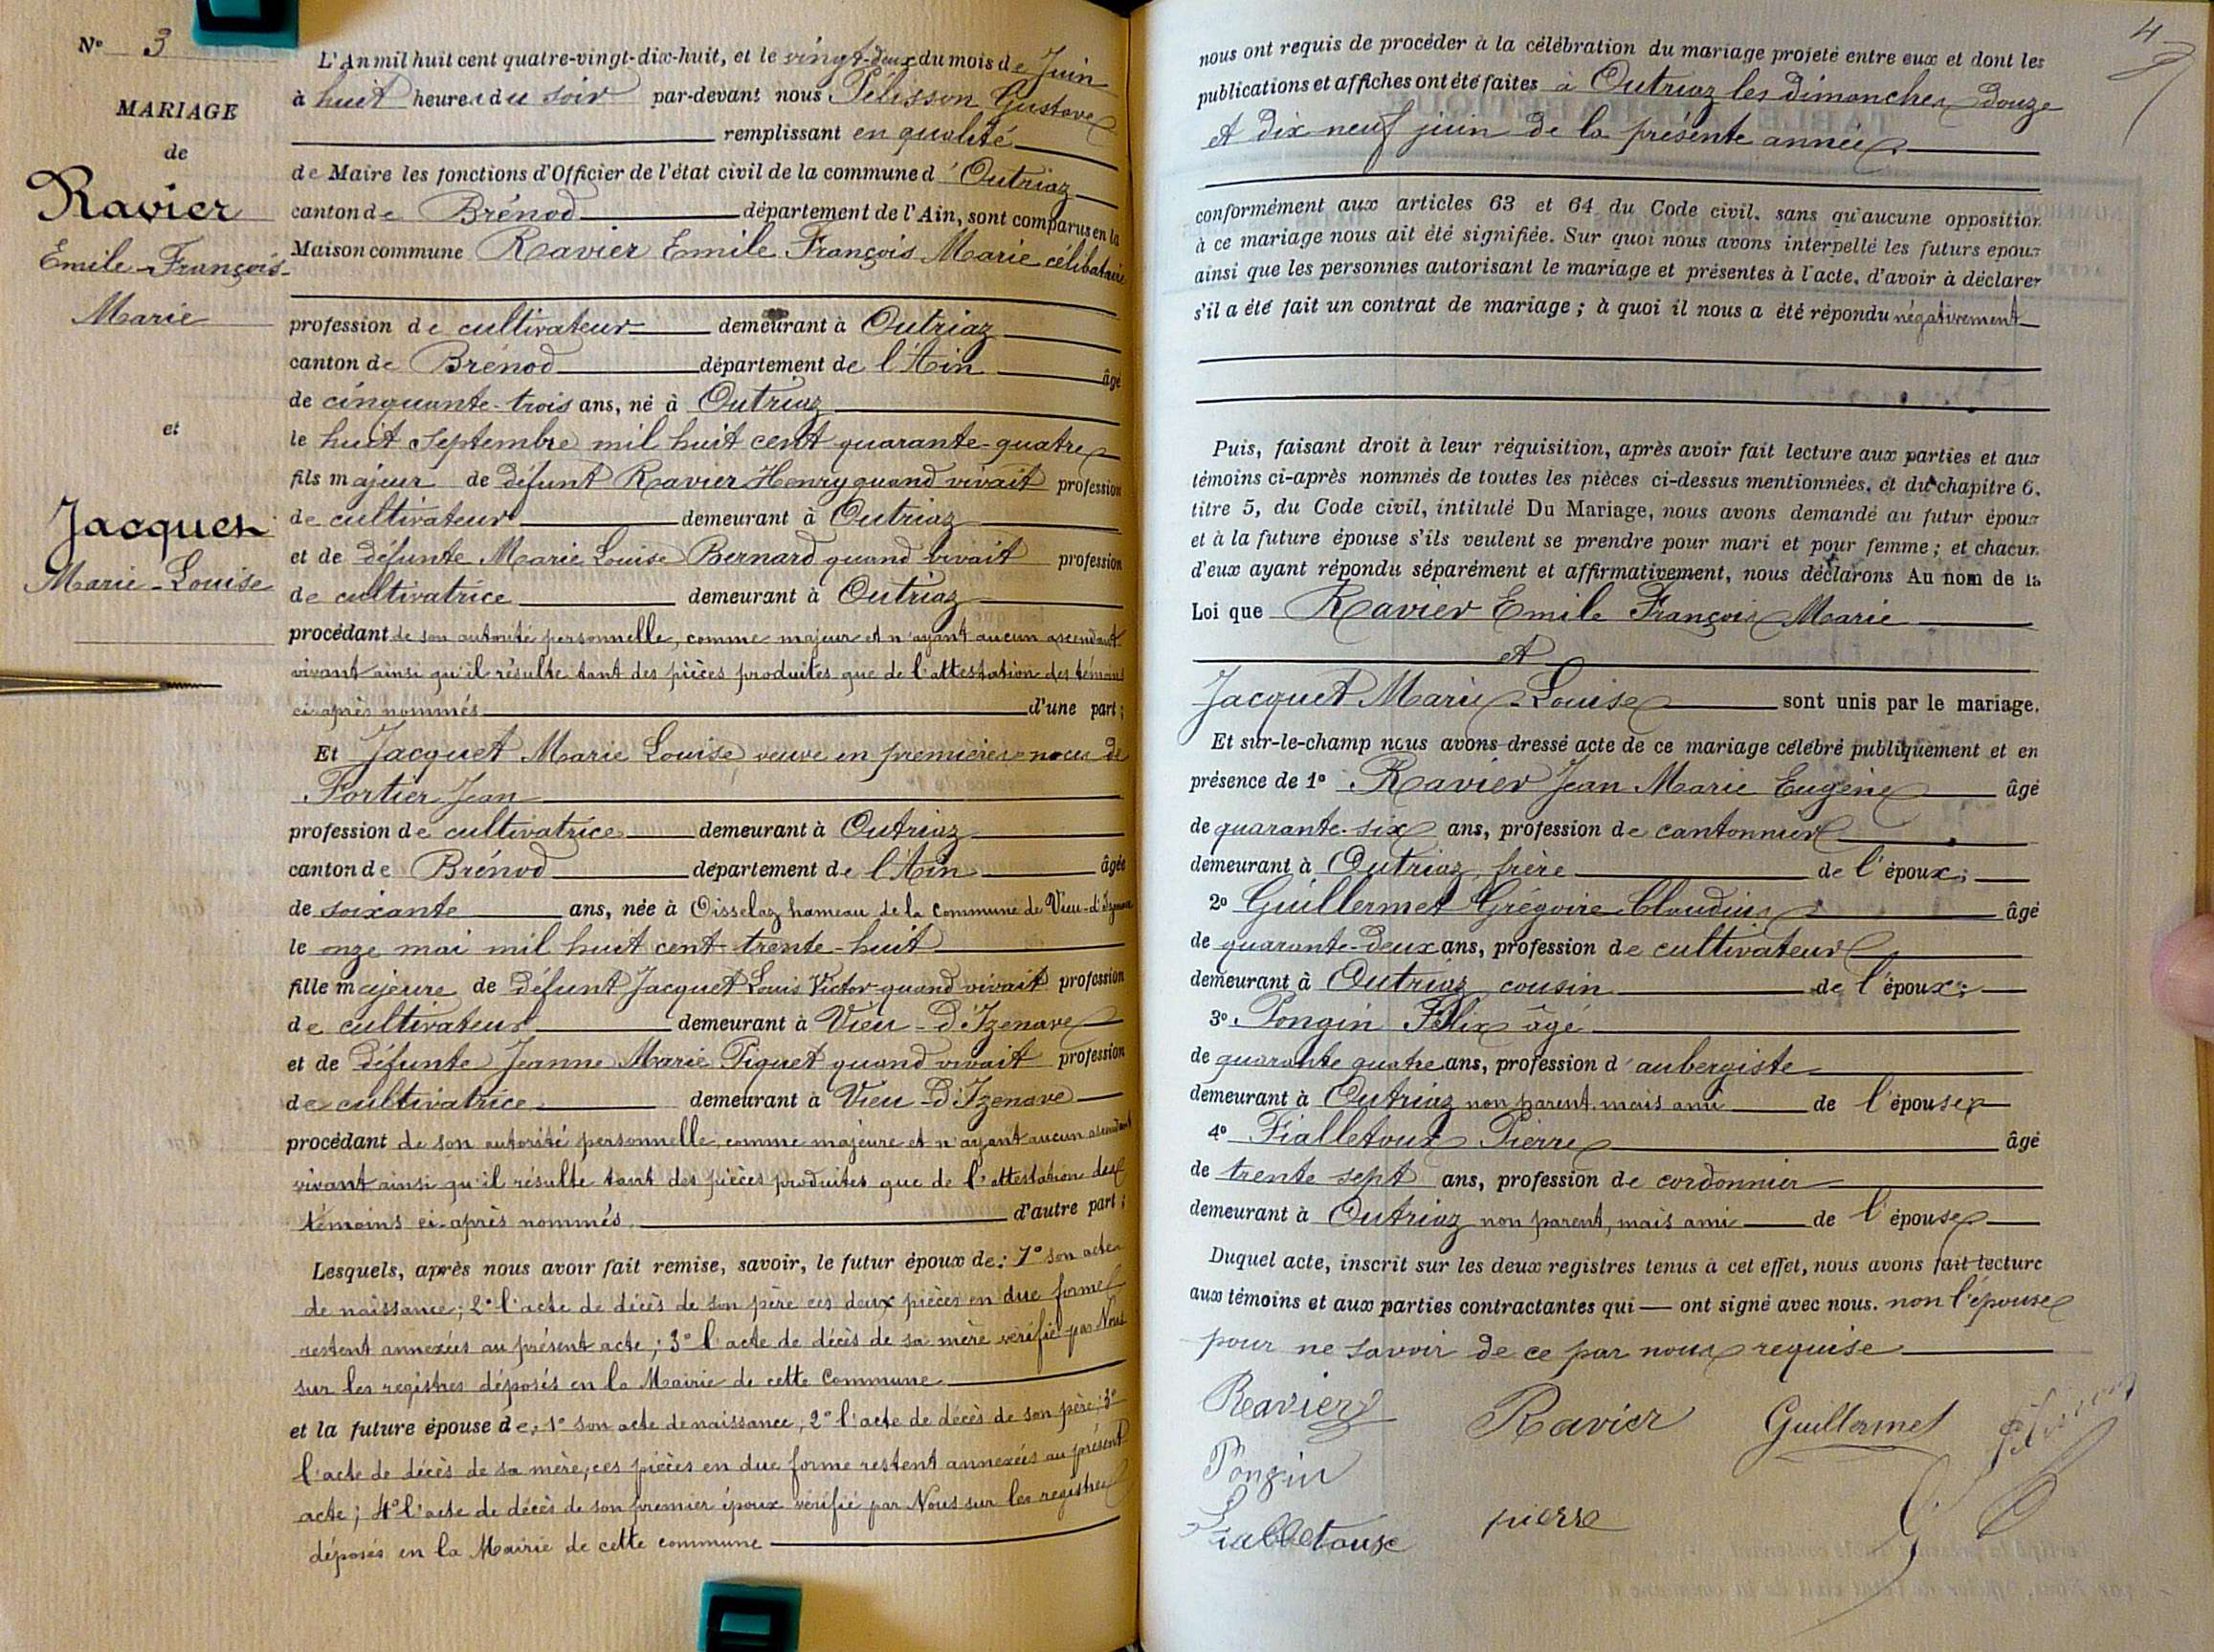 N° 3
MARIAGE
de
Ravier
Emile-François-
Marie
et
Jacquet
Marie-Louise
L'An mil huit cent quatre-vingt-dix-huit, et le vingt-deux du mois de Juin
à huit heures du soir par-devant nous Pélisson Gustave
remplissant en qualité
de Maire les fonctions d'Officier de l'état civil de la commune d'Outriaz
canton de Brénod département de l'Ain, sont comparus en la
Maison commune Ravier Emile François Marie célibataire
profession de cultivateur demeurant à Outriaz
canton de Brénod département de l'Ain âgé
de cinquante-trois ans, né à Outriaz
le huit septembre mil huit cent quarante-quatre
fils majeur de défunt Ravier Henry quand vivait profession
de cultivateur demeurant à Outriaz
et de défunte Marie Louise Bernard quand vivait profession
de cultivatrice demeurant à Outriaz
procédant de son autorité personnelle, comme majeur et n'ayant aucun ascendant
vivant ainsi qu'il résulte tant des pièces produites que de l'attestation des témoins
ci-après nommés d'une part;
Et Jacquet Marie Louise veuve en premières noces de
Portier Jean
profession de cultivatrice demeurant à Outriaz
canton de Brénod département de l'Ain âgée
de soixante ans, née à Oisselaz hameau de la commune de Vieu-d'Izenave
le onze mai mil huit cent trente-huit
fille majeure de défunt Jacquet Louis Victor quand vivait profession
de cultivateur demeurant à Vieu-d'Izenave
et de défunte Jeanne Marie Piquet quand vivait profession
de cultivatrice demeurant à Vieu-d'Izenave
procédant de son autorité personnelle, comme majeure et n'ayant aucun ascendant
vivant ainsi qu'il résulte tant des pièces produites que de l'attestation des
témoins ci-après nommés d'autre part;
Lesquels, après nous avoir fait remise, savoir, le futur époux de: 1° son acte
de naissance; 2° l'acte de décès de son père ces deux pièces en due forme
restent annexées au présent acte; 3° l'acte de décès de sa mère vérifié par Nous
sur les registres déposés en la Mairie de cette Commune
et la future épouse de: 1° son acte de naissance, 2° l'acte de décès de son père; 3°
l'acte de décès de sa mère, ces pièces en due forme restent annexées au présent
acte; 4° l'acte de décès de son premier époux vérifié par Nous sur les registres
déposés en la Mairie de cette commune
4
nous ont requis de procéder à la célébration du mariage projeté entre eux et dont les
publications et affiches ont été faites à Outriaz les dimanches douze
et dix neuf juin de la présente année
conformément aux articles 63 et 64 du Code civil. sans qu'aucune opposition
à ce mariage nous ait été signifiée. Sur quoi nous avons interpellé les futurs époux
ainsi que les personnes autorisant le mariage et présentes à l'acte, d'avoir à déclarer
s'il a été fait un contrat de mariage; à quoi il nous a été répondu négativement
Puis, faisant droit à leur réquisition, après avoir fait lecture aux parties et aux
témoins ci-après nommés de toutes les pièces ci-dessus mentionnées, et du chapitre 6,
titre 5, du Code civil, intitulé Du Mariage, nous avons demandé au futur époux
et à la future épouse s'ils veulent se prendre pour mari et pour femme; et chacun
d'eux ayant répondu séparément et affirmativement, nous déclarons Au nom de la
Loi que Ravier Emile François Marie
et
Jacquet Marie-Louise sont unis par le mariage.
Et sur-le-champ nous avons dressé acte de ce mariage célébré publiquement et en
présence de 1° Ravier Jean Marie Eugène âgé
de quarante-six ans, profession de cantonnier
demeurant à Outriaz, frère de l'époux;
2° Guillermet Grégoire Claudius âgé
de quarante-deux ans, profession de cultivateur
demeurant à Outriaz, cousin de l'époux;
3° Pongin Félix âgé
de quarante quatre ans, profession d'aubergiste
demeurant à Outriaz non parent, mais ami de l'épouse
4° Fialletoux Pierre âgé
de trente-sept ans, profession de cordonnier
demeurant à Outriaz non parent, mais ami de l'épouse
Duquel acte, inscrit sur les deux registres tenus à cet effet, nous avons fait lecture
aux témoins et aux parties contractantes qui — ont signé avec nous. non l'épouse
pour ne savoir de ce par nous requise
Ravier Ravier Guillermet
Pongin
Fialletoux pierre